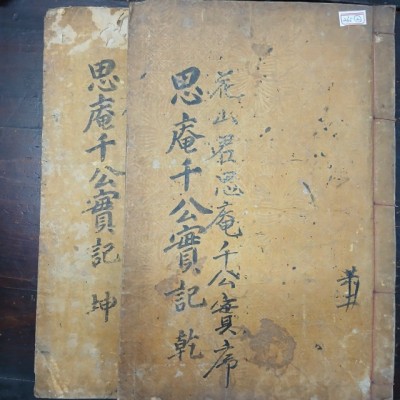 思庵千公實記 乾
花山君思庵千公實席
思庵千公實記 坤